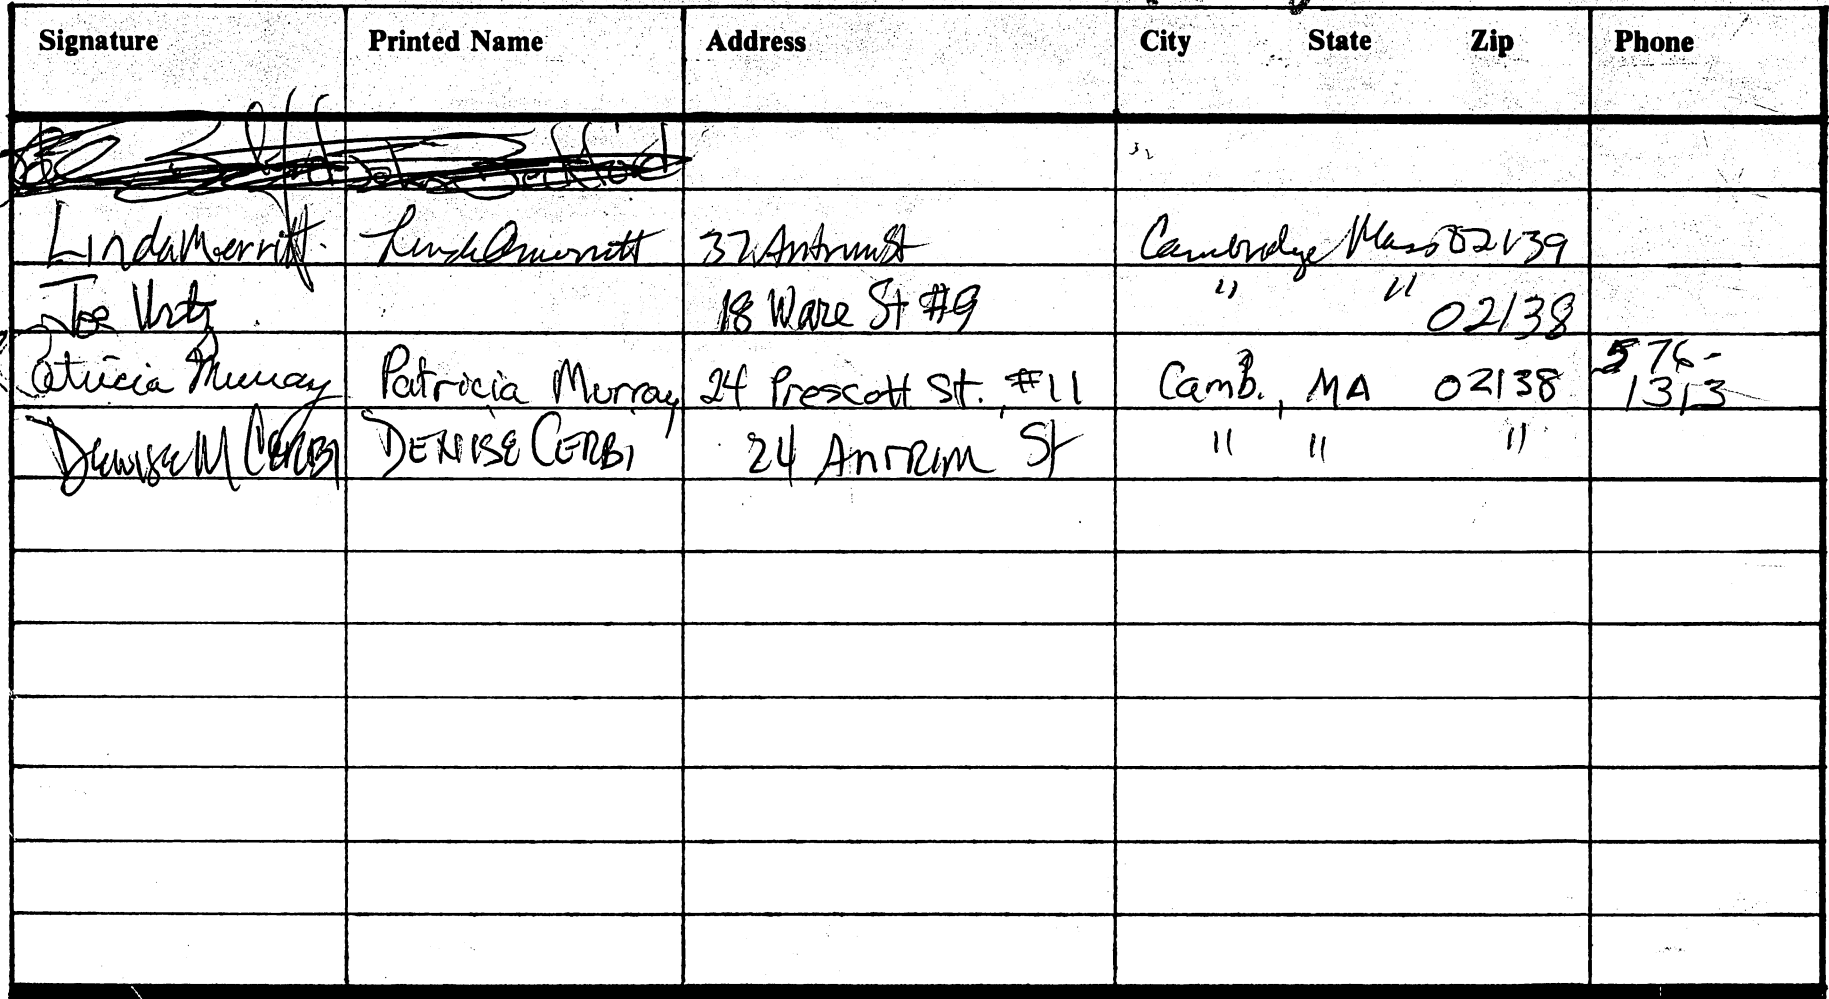 Signature Printed Name Address City State Zip Phone
Linda Merritt. Linda Merritt 37 Antrim St Cambridge Mass 02139
Joe 18 Ware St #9 " " 02138
Patricia Murray Patricia Murray 24 Prescott St. #11 Camb., MA 02138 576-
1313
Denise M Cerbi DENISE CERBI 24 ANTRIM St " " "